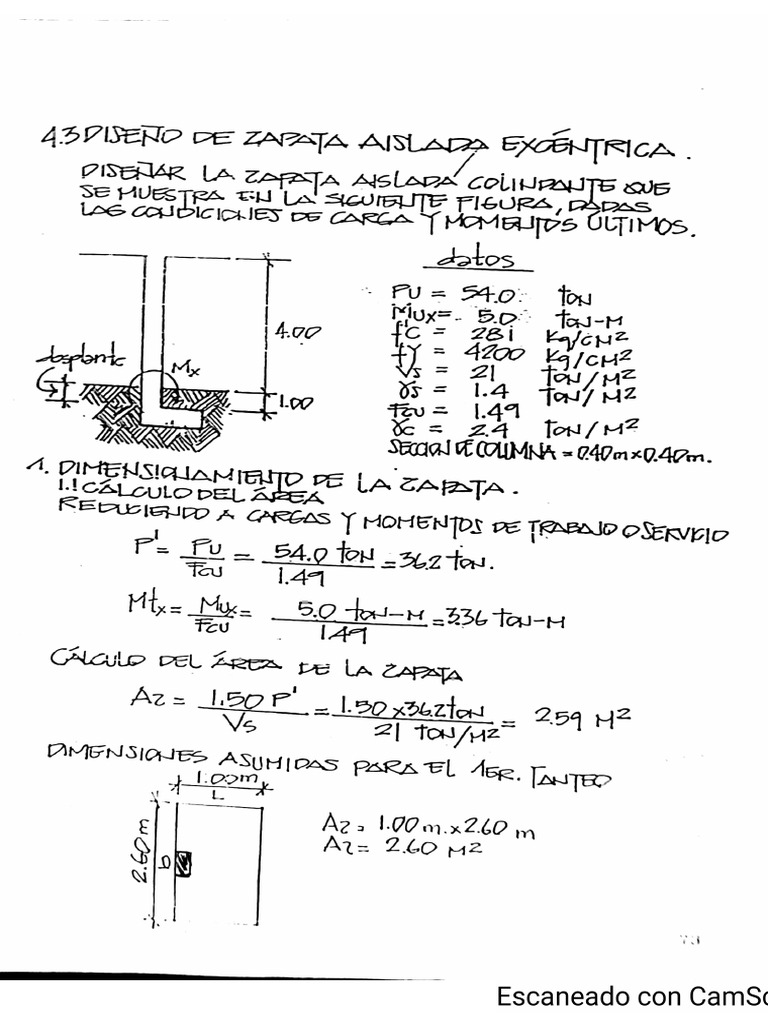 4.3 DISEÑO DE ZAPATA AISLADA EXCÉNTRICA.
DISEÑAR LA ZAPATA AISLADA COLINDANTE QUE
SE MUESTRA EN LA SIGUIENTE FIGURA, DADAS
LAS CONDICIONES DE CARGA Y MOMENTOS ÚLTIMOS.
datos
PU = 54.0 TON
MUX = 5.0 TON-M
f'c = 281 Kg/CM2
fy = 4200 Kg/CM2
Vs = 21 TON/M2
γs = 1.4 TON/M2
FCU = 1.49
γc = 2.4 TON/M2
SECCION DE COLUMNA = 0.40m x 0.40m.
4.00
desplante
Mx
1.00
1. DIMENSIONAMIENTO DE LA ZAPATA.
1.1 CÁLCULO DEL ÁREA
REDUCIENDO A CARGAS Y MOMENTOS DE TRABAJO O SERVICIO
P' = PU/FCU = 54.0 TON/1.49 = 36.2 TON.
Mtx = Mux/FCU = 5.0 TON-M/1.49 = 3.36 TON-M
CÁLCULO DEL ÁREA DE LA ZAPATA
Az = 1.50 P'/Vs = 1.50 x 36.2 TON/21 TON/M2 = 2.59 M2
DIMENSIONES ASUMIDAS PARA EL 1ER. TANTEO
1.00m
L
2.60 m
b
Az = 1.00 m. x 2.60 m
Az = 2.60 M2
73
Escaneado con CamSc